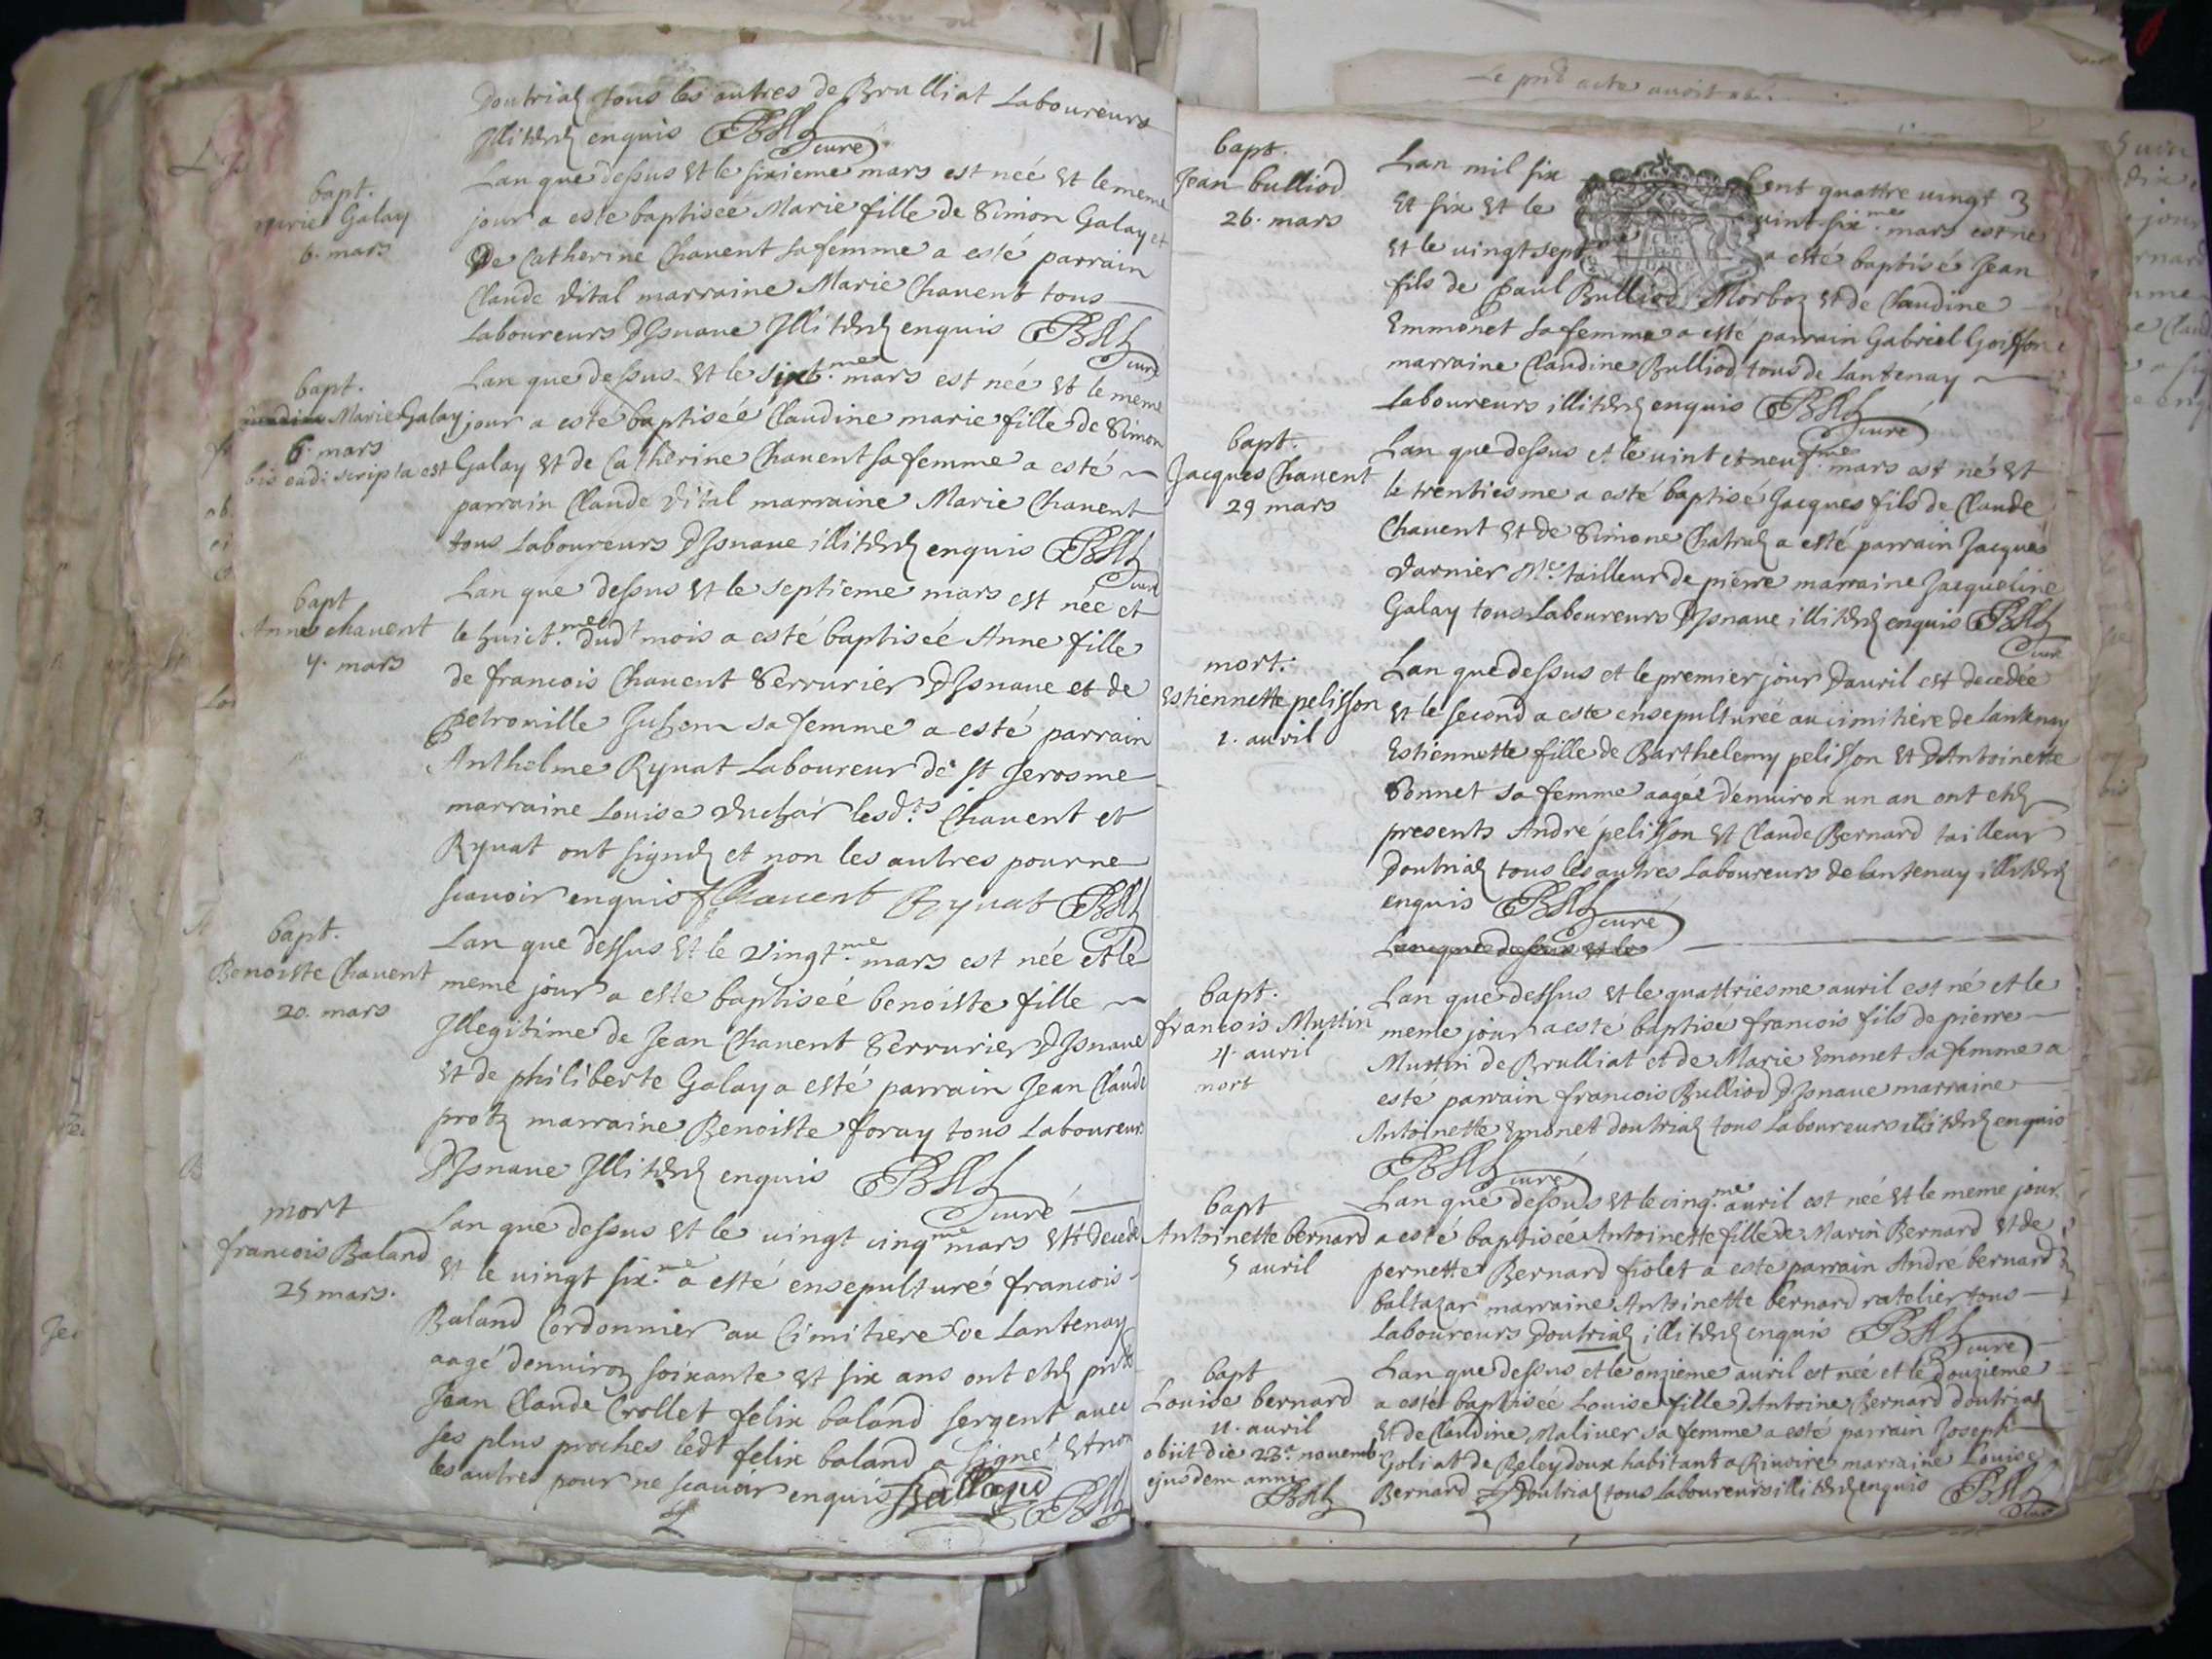 Doutriaz tous les autres de Brulliat Laboureurs
enquis
curé
bapt.
Marie Galay
6. mars
Lan que dessus et le sixieme mars est née et le meme
jour a este baptiseé Marie fille de Simon Galay et
De Catherine Chauent sa femme a esté parrain
Claude Vital marraine Marie Chauent tous
Laboureurs DIsnaue enquis
curé
bapt.
Marie Galay
6. mars
bis eadē scripta est
Lan que dessus et le sixt.me mars est née et le meme
jour a esté baptiseé Claudine marie fille de Simon
Galay et de Catherine Chauent sa femme a esté
parrain Claude Vital marraine Marie Chauent
tous Laboureurs DIsnaue enquis
curé
bapt
Anne chauent
7. mars
Lan que dessus et le septieme mars est née et
le huict.me dudt mois a esté baptiseé Anne fille
de francois Chauent Serrurier DIsnaue et de
Petronille sa femme a esté parrain
Anthelme Ryuat Laboureur de st Jerosme
marraine Louise lesd.ts Chauent et
Ryuat ont signéz et non les autres pour ne
scauoir enquis Chauent Ryuat
bapt.
Benoiste Chauent
20. mars
Lan que dessus et le vingt.me mars est née et le
meme jour a este baptiseé benoiste fille
Illegitime de Jean Chauent Serrurier DIsnaue
et de philiberte Galay a esté parrain Jean Claude
marraine Benoiste foray tous Laboureur
DIsnaue enquis
curé
mort
francois Baland
25 mars.
Lan que dessus et le uingt cinq.me mars est decedé
et le uingt six.me a esté ensepulturé francois
Baland Cordonnier au Cimitiere de Lantenay
aagé denuiron soixante et six ans ont etez
Jean Claude Crollet felix baland sergent auec
ses plus proches ledt felix baland a signé et non
les autres pour ne scauoir enquis Balland
Le acte auoit
bapt.
Jean bulliod
26. mars
Lan mil six Cent quattre uingt
et six et le uint six.me mars est né
et le uingt sept.me a esté baptisé Jean
fils de Paul Bulliod Morboz et de Claudine
Emmonet sa femme a esté parrain Gabriel Goiffon
marraine Claudine Bulliod tous de Lantenay
Laboureurs enquis
curé
bapt.
Jacques Chauent
29 mars
Lan que dessus et le uint et neuf.me mars est né et
le trentiesme a esté baptisé Jacques fils de Claude
Chauent et de Simone a esté parrain Jacques
Darnier M.e tailleur de pierre marraine Jacqueline
Galay tous Laboureurs DIsnaue enquis
curé
mort.
Estiennette pelisson
1. auril
Lan que dessus et le premier jour Dauril est decedée
et le second a este ensepultureé au cimitiere de Lantenay
Estiennette fille de Barthelemy pelisson et DAntoinette
Bonnet sa femme aageé d'enuiron un an ont etez
presents André pelisson et Claude Bernard tailleur
Doutriaz tous les autres Laboureurs de Lantenay
enquis
curé
Lan que dessus et le
bapt.
francois Mustin
4. auril
mort
Lan que dessus et le quattriesme auril est né et le
meme jour a esté baptisé francois fils de pierre
Mustin de Brulliat et de Marie Emonet sa femme a
esté parrain francois Bulliod DIsnaue marraine
Antoinette Emonet doutriaz tous Laboureurs enquis
curé
bapt
Antoinette bernard
5 auril
Lan que dessus et le cinq.me auril est née et le meme jour
a esté baptiseé Antoinette fille de Marin Bernard et de
pernette Bernard fiolet a este parrain André bernard
baltazar marraine Antoinette bernard ratelier tous
Laboureurs Doutriaz enquis
curé
bapt
Louise bernard
11. auril
obiit die 23.a nouemb.
ejusdem anni
Lan que dessus et le onzieme auril est née et le douzieme
a esté baptiseé Louise fille DAntoine Bernard doutriaz
Et de Claudine Maliuer sa femme a esté parrain Joseph
Goliat de Beleydoux habitant a Riuoire marraine Louise
Bernard Doutriaz tous Laboureurs enquis